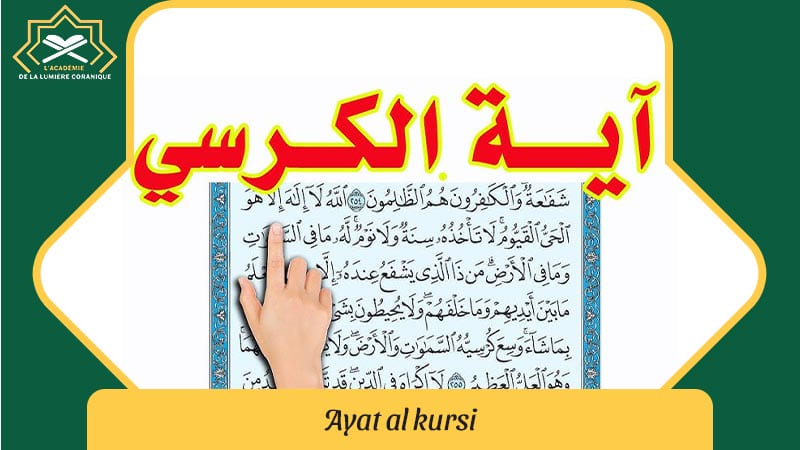 L'ACADÉMIE
DE LA LUMIÈRE CORANIQUE
آية الكرسي
شَفَٰعَةٌ وَٱلْكَٰفِرُونَ هُمُ ٱلظَّٰلِمُونَ ٢٥٤ ٱللَّهُ لَآ إِلَٰهَ إِلَّا هُوَ
ٱلْحَىُّ ٱلْقَيُّومُ ۚ لَا تَأْخُذُهُۥ سِنَةٌ وَلَا نَوْمٌ ۚ لَّهُۥ مَا فِى ٱلسَّمَٰوَٰتِ
وَمَا فِى ٱلْأَرْضِ ۗ مَن ذَا ٱلَّذِى يَشْفَعُ عِندَهُۥٓ إِلَّا
مَا بَيْنَ أَيْدِيهِمْ وَمَا خَلْفَهُمْ ۖ وَلَا يُحِيطُونَ
بِمَا شَآءَ ۚ وَسِعَ كُرْسِيُّهُ ٱلسَّمَٰوَٰتِ وَٱلْأَرْضَ ۖ
وَهُوَ ٱلْعَلِىُّ ٱلْعَظِيمُ ٢٥٥ لَآ إِكْرَاهَ فِى ٱلدِّينِ ۖ قَد
Ayat al kursi